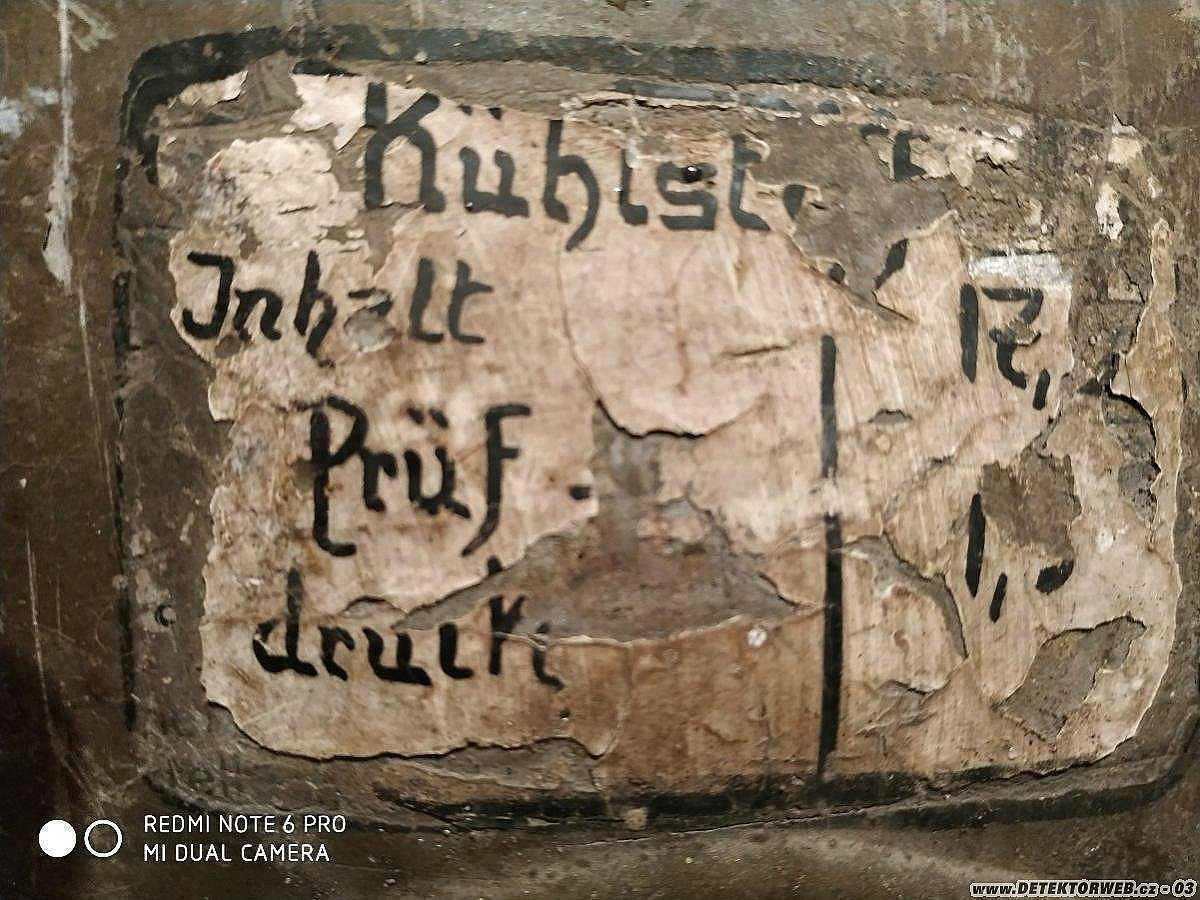 Kühlst.
Inhalt 12,
Prüf-
druck 1,5
REDMI NOTE 6 PRO
MI DUAL CAMERA
www.DETEKTORWEB.cz - 03